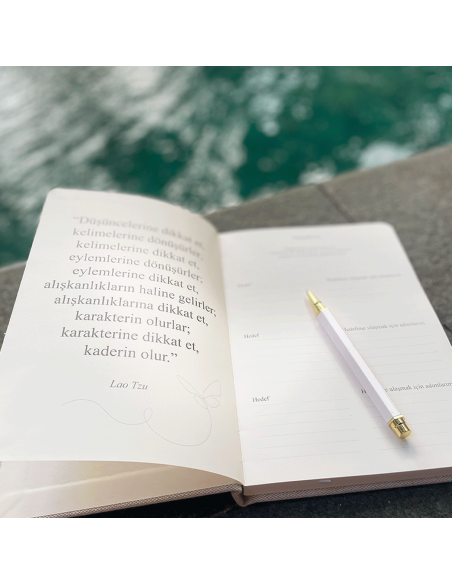 “Düşüncelerine dikkat et,
kelimelerine dönüşürler;
kelimelerine dikkat et,
eylemlerine dönüşürler;
eylemlerine dikkat et,
alışkanlıkların haline gelirler;
alışkanlıklarına dikkat et,
karakterin olurlar;
karakterine dikkat et,
kaderin olur.”
Lao Tzu
Hedef
ulaşmak için adımlarım
Hedef
ulaşmak için adımlarım